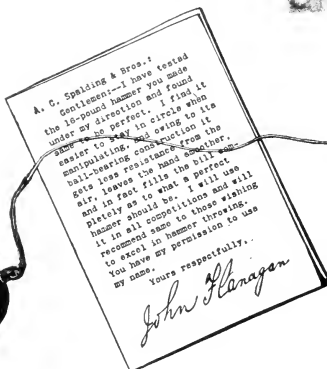 A. G. Spalding & Bros.:
Gentlemen:--I have tested
the 16-pound hammer you made
under my direction and found
same to be perfect. I find it
easier to play in circle when
manipulating, and owing to its
ball-bearing construction it
gets less resistance from the
air, leaves the hand smoother,
and in fact fills the bill com-
pletely as to what a perfect
hammer should be. I will use
it in all competitions and will
recommend same to those wishing
to excel in hammer throwing.
You have my permission to use
my name.
Yours respectfully,
John Flanagan